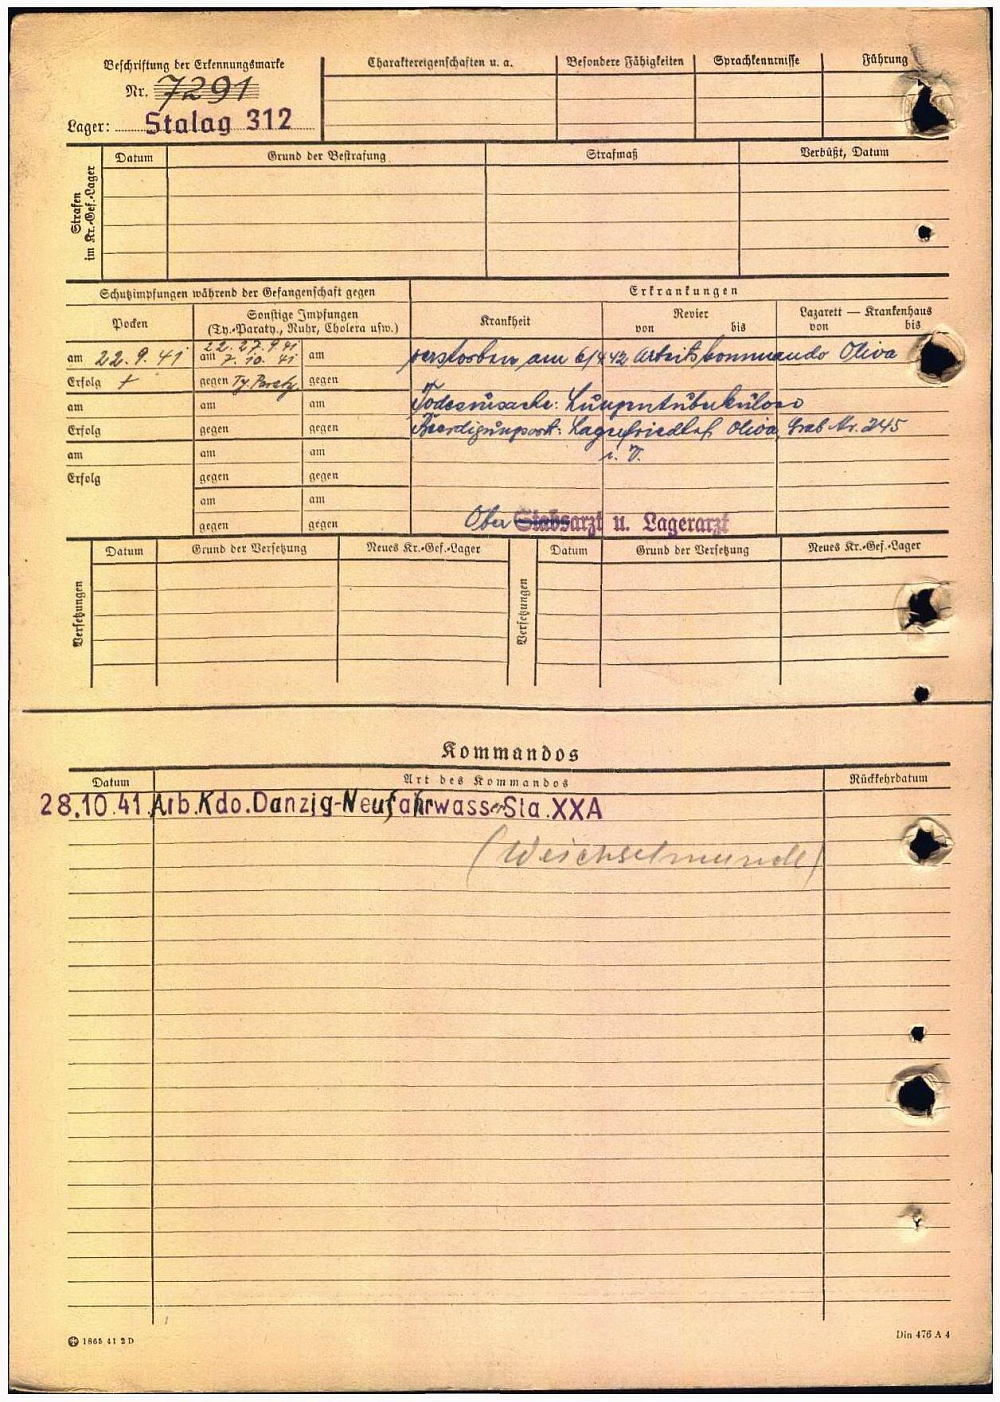 Beschriftung der Erkennungsmarke
Nr. 7291
Lager: Stalag 312
Charaktereigenschaften u. a.
Besondere Fähigkeiten
Sprachkenntnisse
Führung
Strafen im Kr.-Gef.-Lager
Datum
Grund der Bestrafung
Strafmaß
Verbüßt, Datum
Schutzimpfungen während der Gefangenschaft gegen
Erkrankungen
Pocken
Sonstige Impfungen
(Ty.-Paraty., Ruhr, Cholera usw.)
Krankheit
Revier
von bis
Lazarett — Krankenhaus
von bis
am 22.9.41
am 22. 27.9 41
7. 10. 41
am
verstorben am 6/4 42 Arbeitskommando Oliva
Erfolg +
gegen Ty. Paraty.
gegen
am am am
Todesursache: Lungentuberkulose
Erfolg gegen gegen
Beerdigungsort: Lagerfriedhof Oliva, Grab Nr. 245
am am am
i. V.
Erfolg gegen gegen
am am
gegen gegen
Ober Stabsarzt u. Lagerarzt
Versetzungen
Datum
Grund der Versetzung
Neues Kr.-Gef.-Lager
Versetzungen
Datum
Grund der Versetzung
Neues Kr.-Gef.-Lager
Kommandos
Datum
Art des Kommandos
Rückkehrdatum
28.10.41. Arb.Kdo.Danzig-Neufahrwasser Sta.XXA
(Weichselmünde)
1865 41 2 D
Din 476 A 4